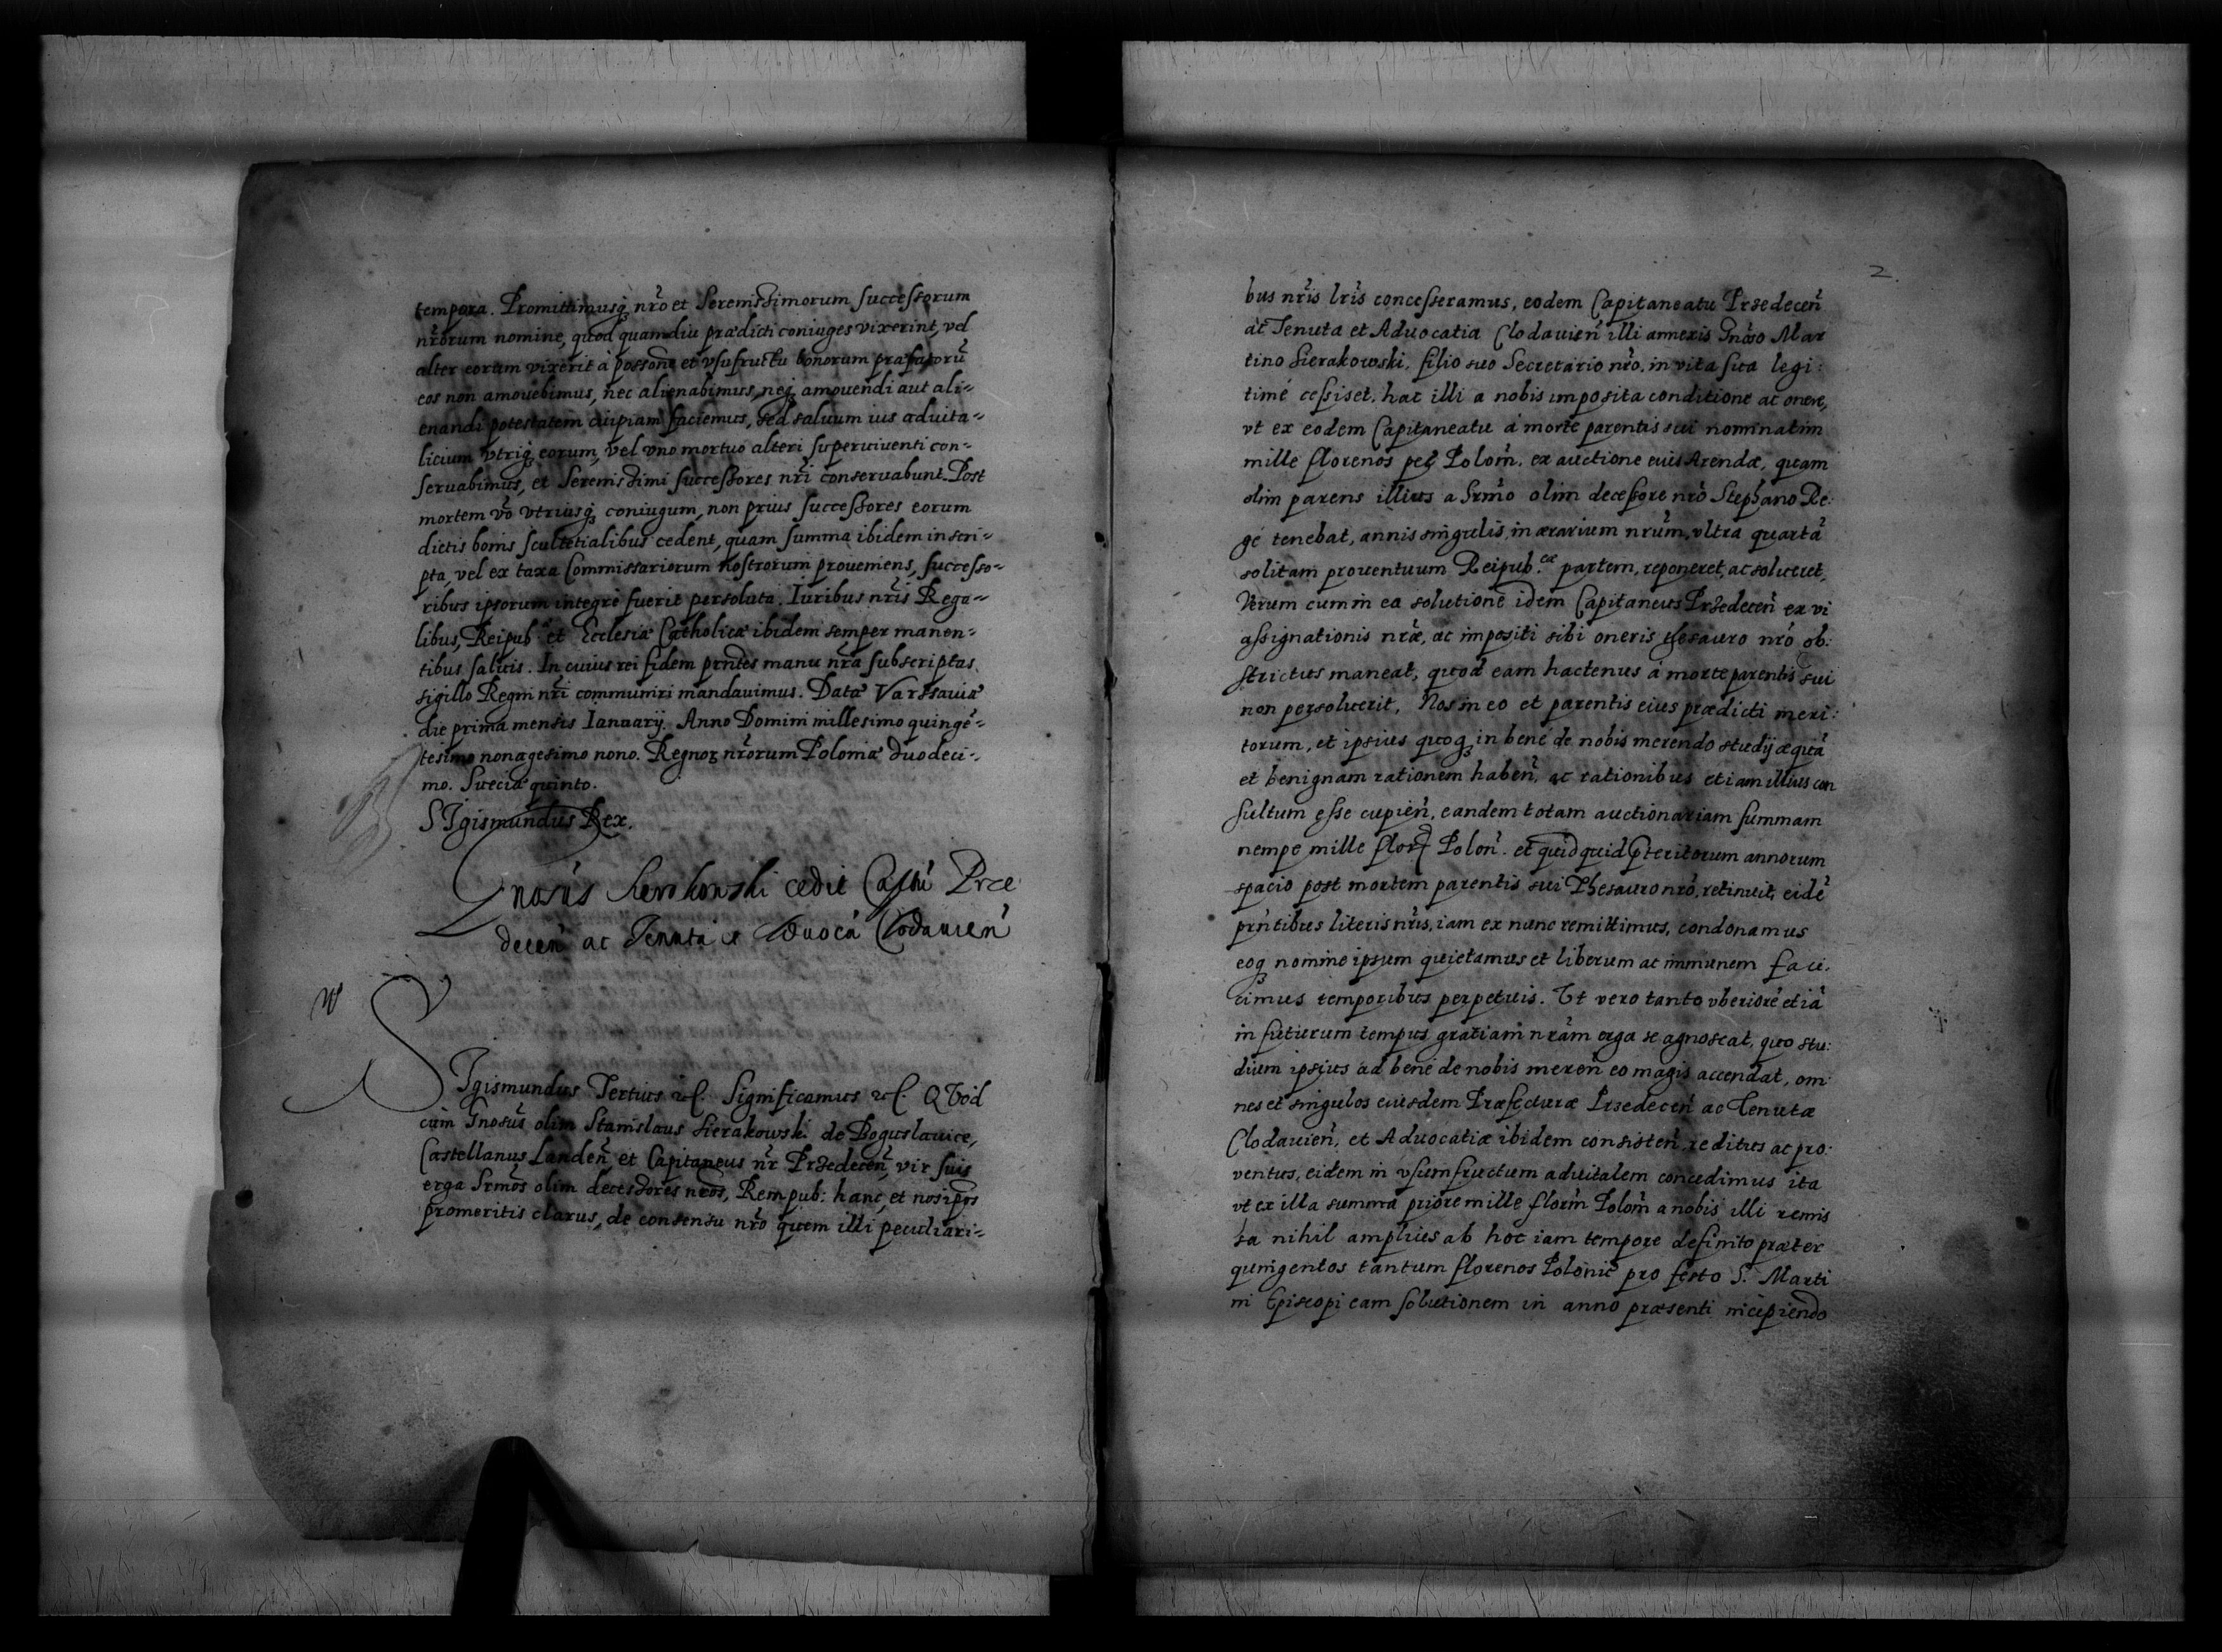 tempora. Promittimusq; nr̃o et Serenissimorum successorum
nr̃orum nomine, quod quamdiu prædicti coniuges vixerint, vel
alter eorum vixerit à possone et vsufructu bonorum præfatorũ
eos non amouebimus, nec alienabimus, neq; amouendi aut ali-
enandi potestatem cuipiam faciemus, sed saluum ius aduita-
licium vtriq; eorum, vel vno mortuo alteri superuiuenti con-
seruabimus, et Serenissimi successores nr̃i conseruabunt. Post
mortem võ vtriusq; coniugum, non prius successores eorum
dictis bonis scultetialibus cedent, quam summa ibidem inscri-
pta, vel ex taxa Commissariorum nostrorum proueniens, successo-
ribus ipsorum integrè fuerit persoluta. Iuribus nr̃is Rega-
libus, Reipub: et Ecclesiæ Catholicæ ibidem semper manen-
tibus saluis. In cuius rei fidem prñtes manu nr̃a subscriptas
sigillo Regni nr̃i communiri mandauimus. Datæ Varssauiæ
die prima mensis Ianuarij. Anno Domini millesimo quingẽ-
tesimo nonagesimo nono. Regnoꝝ nr̃orum Poloniæ duodeci-
mo. Sueciæ quinto.
SIgismundus Rex.
Gnosus Sierakowski cedit Cap̃tũ Prze
deceñ ac Tenuta et Aduocã Clodauieñ
SIgismundus Tertius etc. Significamus etc. QVod
cùm Gnosus olim Stanislaus Sierakowski de Boguslauice,
Castellanus Landeñ et Capitaneus nr̃ Przedeceñ, vir suis
erga Srmos olim decessores nr̃os, Rempub: hanc, et nos ipsos
promeritis clarus, de consensu nr̃o quem illi peculiari-
2
bus nr̃is lr̃is concesseramus, eodem Capitaneatu Przedeceñ
ac Tenuta et Aduocatia Clodauieñ illi annexis Gnoso Mar
tino Sierakowski, filio suo Secretario nr̃o, in vita sua legi:
timè cessisset, hac illi a nobis imposita conditione ac onere,
vt ex eodem Capitaneatu à morte parentis sui nominatim
mille florenos pec̃ Poloñ. ex auctione eius Arendæ, quam
olim parens illius a Srmo olim decessore nr̃o Stephano Re:
ge tenebat, annis singulis, in ærarium nr̃um, vltra quartã
solitam prouentuum Reipub.cæ partem, reponeret, ac solueret,
Verum cum in ea solutione idem Capitaneus Przedeceñ ex vi
assignationis nr̃æ, ac impositi sibi oneris thesauro nr̃o ob:
strictus maneat, quod eam hactenus à morte parentis sui
non persoluerit, Nos in eo et parentis eius prædicti meri:
torum, et ipsius quoq; in bene de nobis merendo studij æquã
et benignam rationem habeñ, ac rationibus etiam illius con
sultum esse cupieñ, eandem totam auctionariam summam
nempe mille flor: Poloñ. et quidquid p̃teritorum annorum
spacio post mortem parentis sui Thesauro nr̃o, retinuit, eidẽ
prñtibus literis nr̃is, iam ex nunc remittimus, condonamus
eoq; nomine ipsum quietamus et liberum ac immunem faci:
imus temporibus perpetuis. Vt vero tanto vberiorẽ etiã
in futurum tempus gratiam nr̃am erga se agnoscat, quo stu:
dium ipsius ad bene de nobis mereñ eo magis accendat, om:
nes et singulos eiusdem Præfecturæ Przedeceñ ac Tenutæ
Clodauieñ, et Aduocatiæ ibidem consisteñ, reditus ac pro:
ventus, eidem in vsumfructum aduitalem concedimus ita
vt ex illa summa priore mille floreñ Poloñ a nobis illi remis
sa nihil amplius ab hoc iam tempore definito præter
quingentos tantum florenos Polonic̃ pro festo S. Marti
ni Episcopi eam solutionem in anno præsenti incipiendo